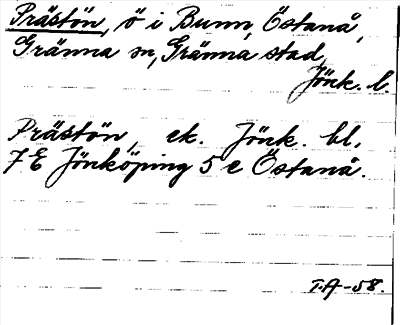 Prästön, ö i Bunn, Östanå,
Gränna sn, Gränna stad,
Jönk. l.
Prästön, ek. Jönk. bl.
7 E Jönköping 5 e Östanå.
T.A-58.